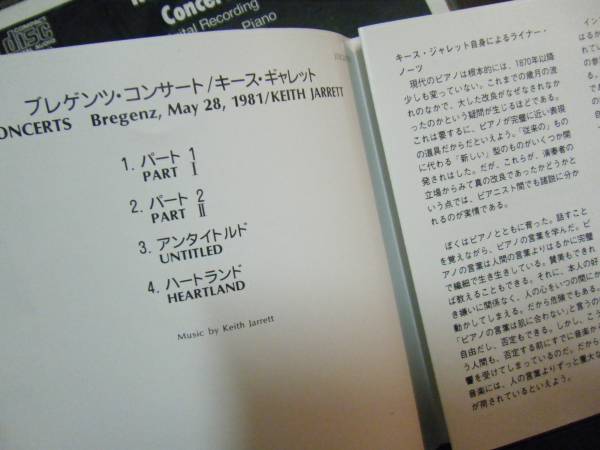 COMPACT
disc
Concer
ital Recording
Piano
ブレゲンツ・コンサート/キース・ギャレット
ONCERTS Bregenz, May 28, 1981/KEITH JARRETT
1. パート 1
PART I
2. パート 2
PART II
3. アンタイトルド
UNTITLED
4. ハートランド
HEARTLAND
Music by Keith Jarrett
キース・ジャレット自身によるライナー・
ノーツ
現代のピアノは根本的には、1870年以降
少しも変っていない。これまでの歳月の流
れのなかで、大した改良がなぜなされなか
ったのかという疑問が生じるほどである。
これは要するに、ピアノが完璧に近い表現
の道具だからだといえよう。「従来の」もの
に代わる「新しい」型のものがいくつか開
発されはした。だが、これらが、演奏者の
立場からみて真の改良であったかどうかと
いう点では、ピアニスト間でも諸説に分か
れるのが実情である。
ぼくはピアノとともに育った。話すこと
を覚えながら、ピアノの言葉を学んだ。ピ
アノの言葉は人間の言葉よりはるかに完璧
で繊細で生き生きしている。賛美もできれ
ば教えることもできる。それに、本人の好
き嫌いに関係なく、人の心をいつの間にか
動かしてしまえる。だから危険でもある。
「ピアノの言葉は肌に合わない」と言うのも
自由だし、否定もできる。しかし、こう
う人間も、否定する前にすでに音楽から
響を受けてしまっているのだ。だから
音楽には、人の言葉よりずっと重大な
が荷されているといえよう。
イン
はるか
での
の参
で